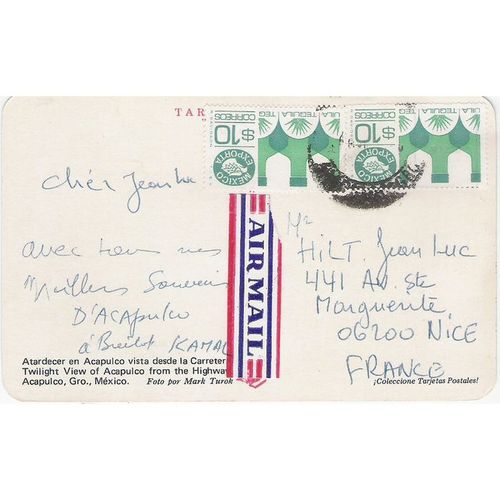 TAR
$10 CORREOS TEQUILA
MEXICO EXPORTA
$10 CORREOS TEQUILA
MEXICO EXPORTA
Chér Jean Luc
avec tous mes
Meilleurs Souvenirs
D'ACApulco
à Bientot KAMAL
AIR MAIL
Mr
HiLT Jean Luc
441 Av. Ste
Marguerite
06200 NICE
FRANCE
Atardecer en Acapulco vista desde la Carreter
Twilight View of Acapulco from the Highway
Acapulco, Gro., México. Foto por Mark Turok
¡Coleccione Tarjetas Postales!